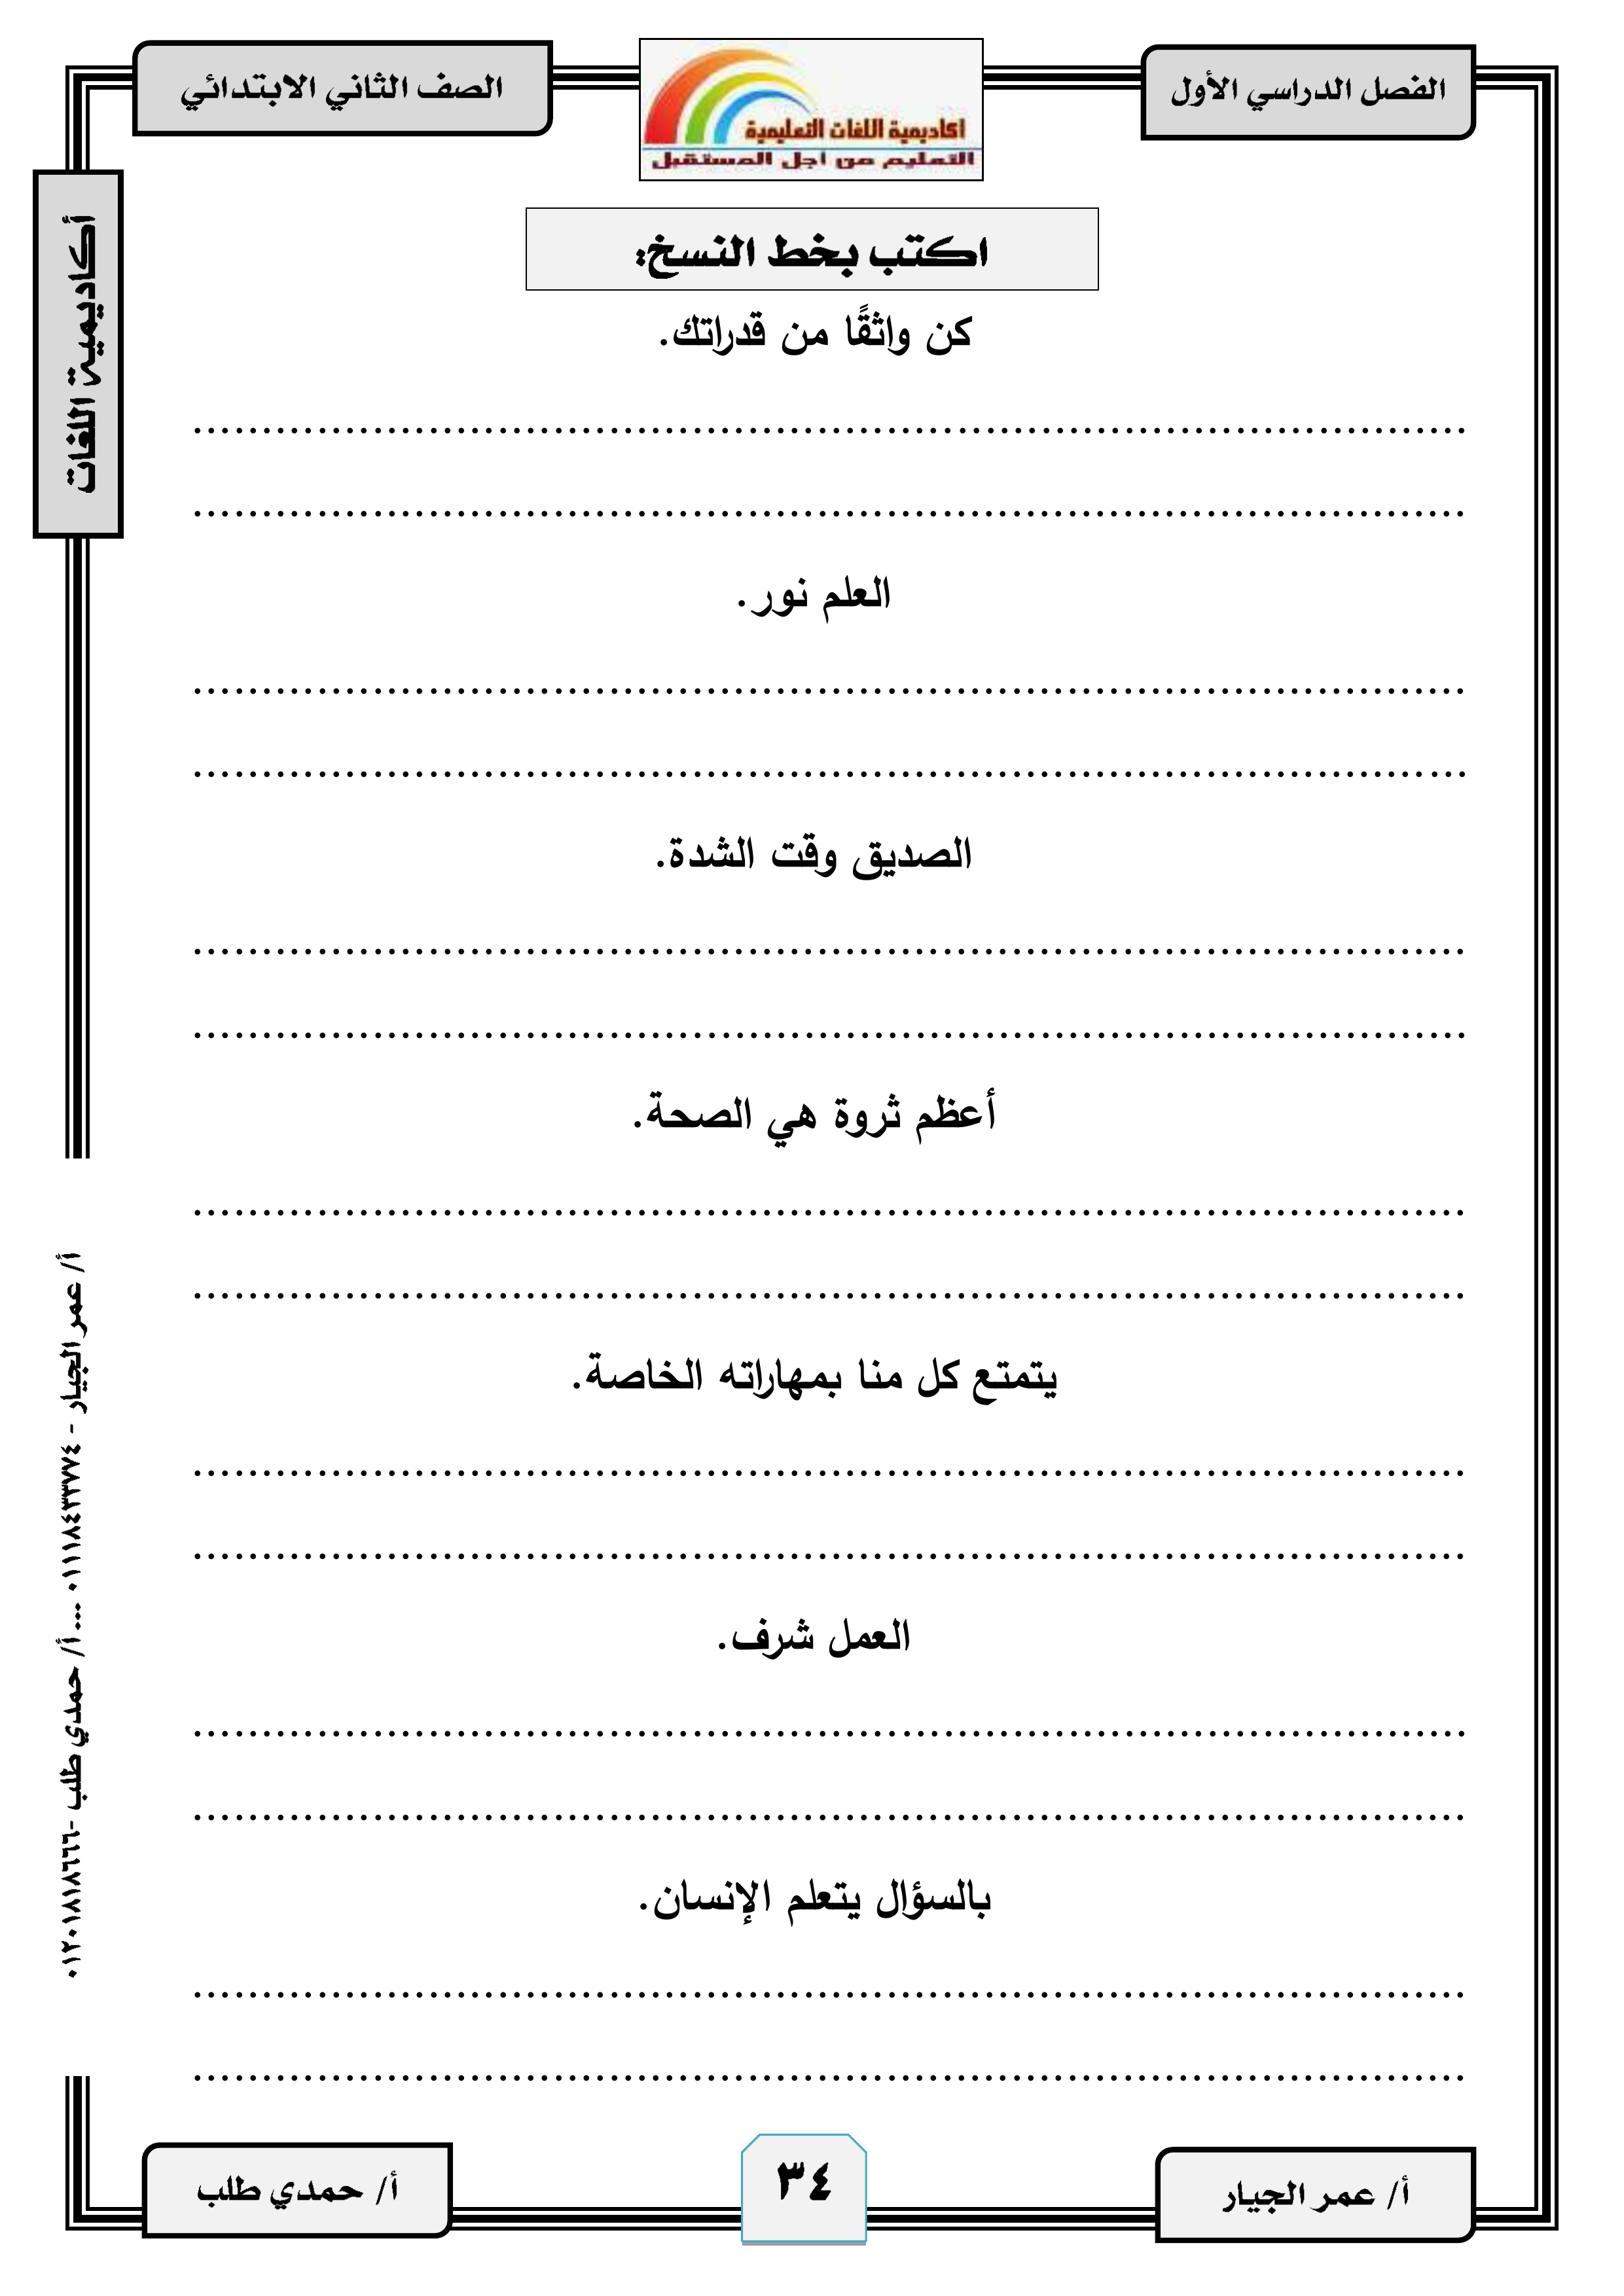 الفصل الدراسي الأول
أكاديمية اللغات التعليمية
التعليم من أجل المستقبل
الصف الثاني الابتدائي
أكاديمية اللغات
اكتب بخط النسخ:
كن واثقًا من قدراتك.
................................................................
................................................................
العلم نور.
................................................................
................................................................
الصديق وقت الشدة.
................................................................
................................................................
أعظم ثروة هي الصحة.
................................................................
................................................................
يتمتع كل منا بمهاراته الخاصة.
................................................................
................................................................
العمل شرف.
................................................................
................................................................
بالسؤال يتعلم الإنسان.
................................................................
................................................................
أ/ عمر الجيار - ٠١١١٨٤٣٣٧٧٤ ... أ/ حمدي طلب -٠١٢٠١٨١٨٦٦٦
أ/ عمر الجيار
٣٤
أ/ حمدي طلب